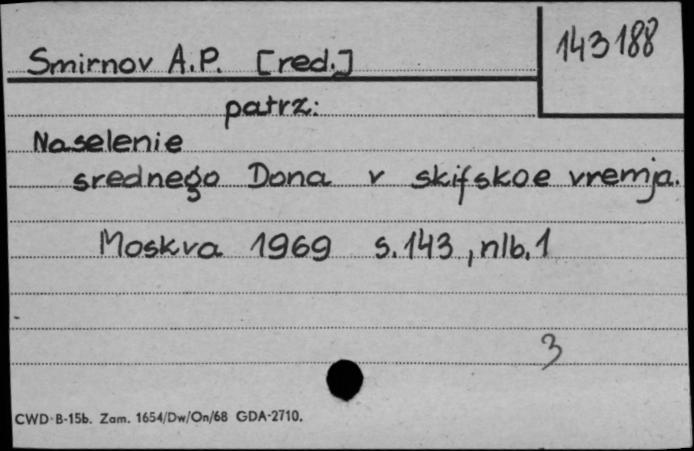 143188
Smirnov A.P. [red.]
patrz:
Naselenie
srednego Dona v skifskoe vremja.
Moskva 1969 s. 143, nlb. 1
3
CWD-B-15b. Zam. 1654/Dw/On/68 GDA-2710.